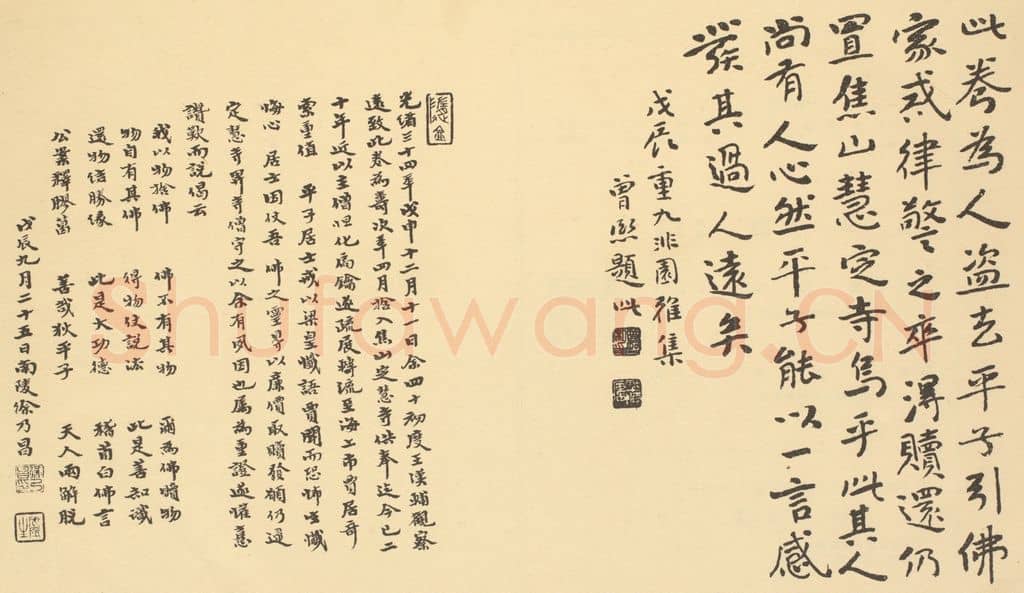 此卷為人盜去平子引佛
家戒律警之卒得贖還仍
置焦山慧定寺烏乎此其人
尚有人心然平子能以一言感
發其過人遠矣
戊辰重九非園雅集
曾熙題此
光緒三十四年戊申十二月十一日余四十初度王漢輔觀察
遠致此卷為壽次年四月捨入焦山定慧寺供奉迄今已二
十年近以主僧怛化扃鐍遂疏展轉流至海上市賈居奇
索重值 平子居士戒以梁皇懺語賈聞而恐怖生懺
悔心 居士因仗吾 佛之靈得以廉價取贖發願仍返
定慧寺畀寺僧守之以余有夙因也屬為重證遂懽喜
讚歎而說偈云
我以物捨佛 佛不有其物 爾為佛贖物
物自有其佛 得物仗說法 此是善知識
還物結勝緣 此是大功德 稽首白佛言
公案釋膠葛 善哉狄平子 天人兩解脫
戊辰九月二十五日南陵徐乃昌
Shufawang.CN